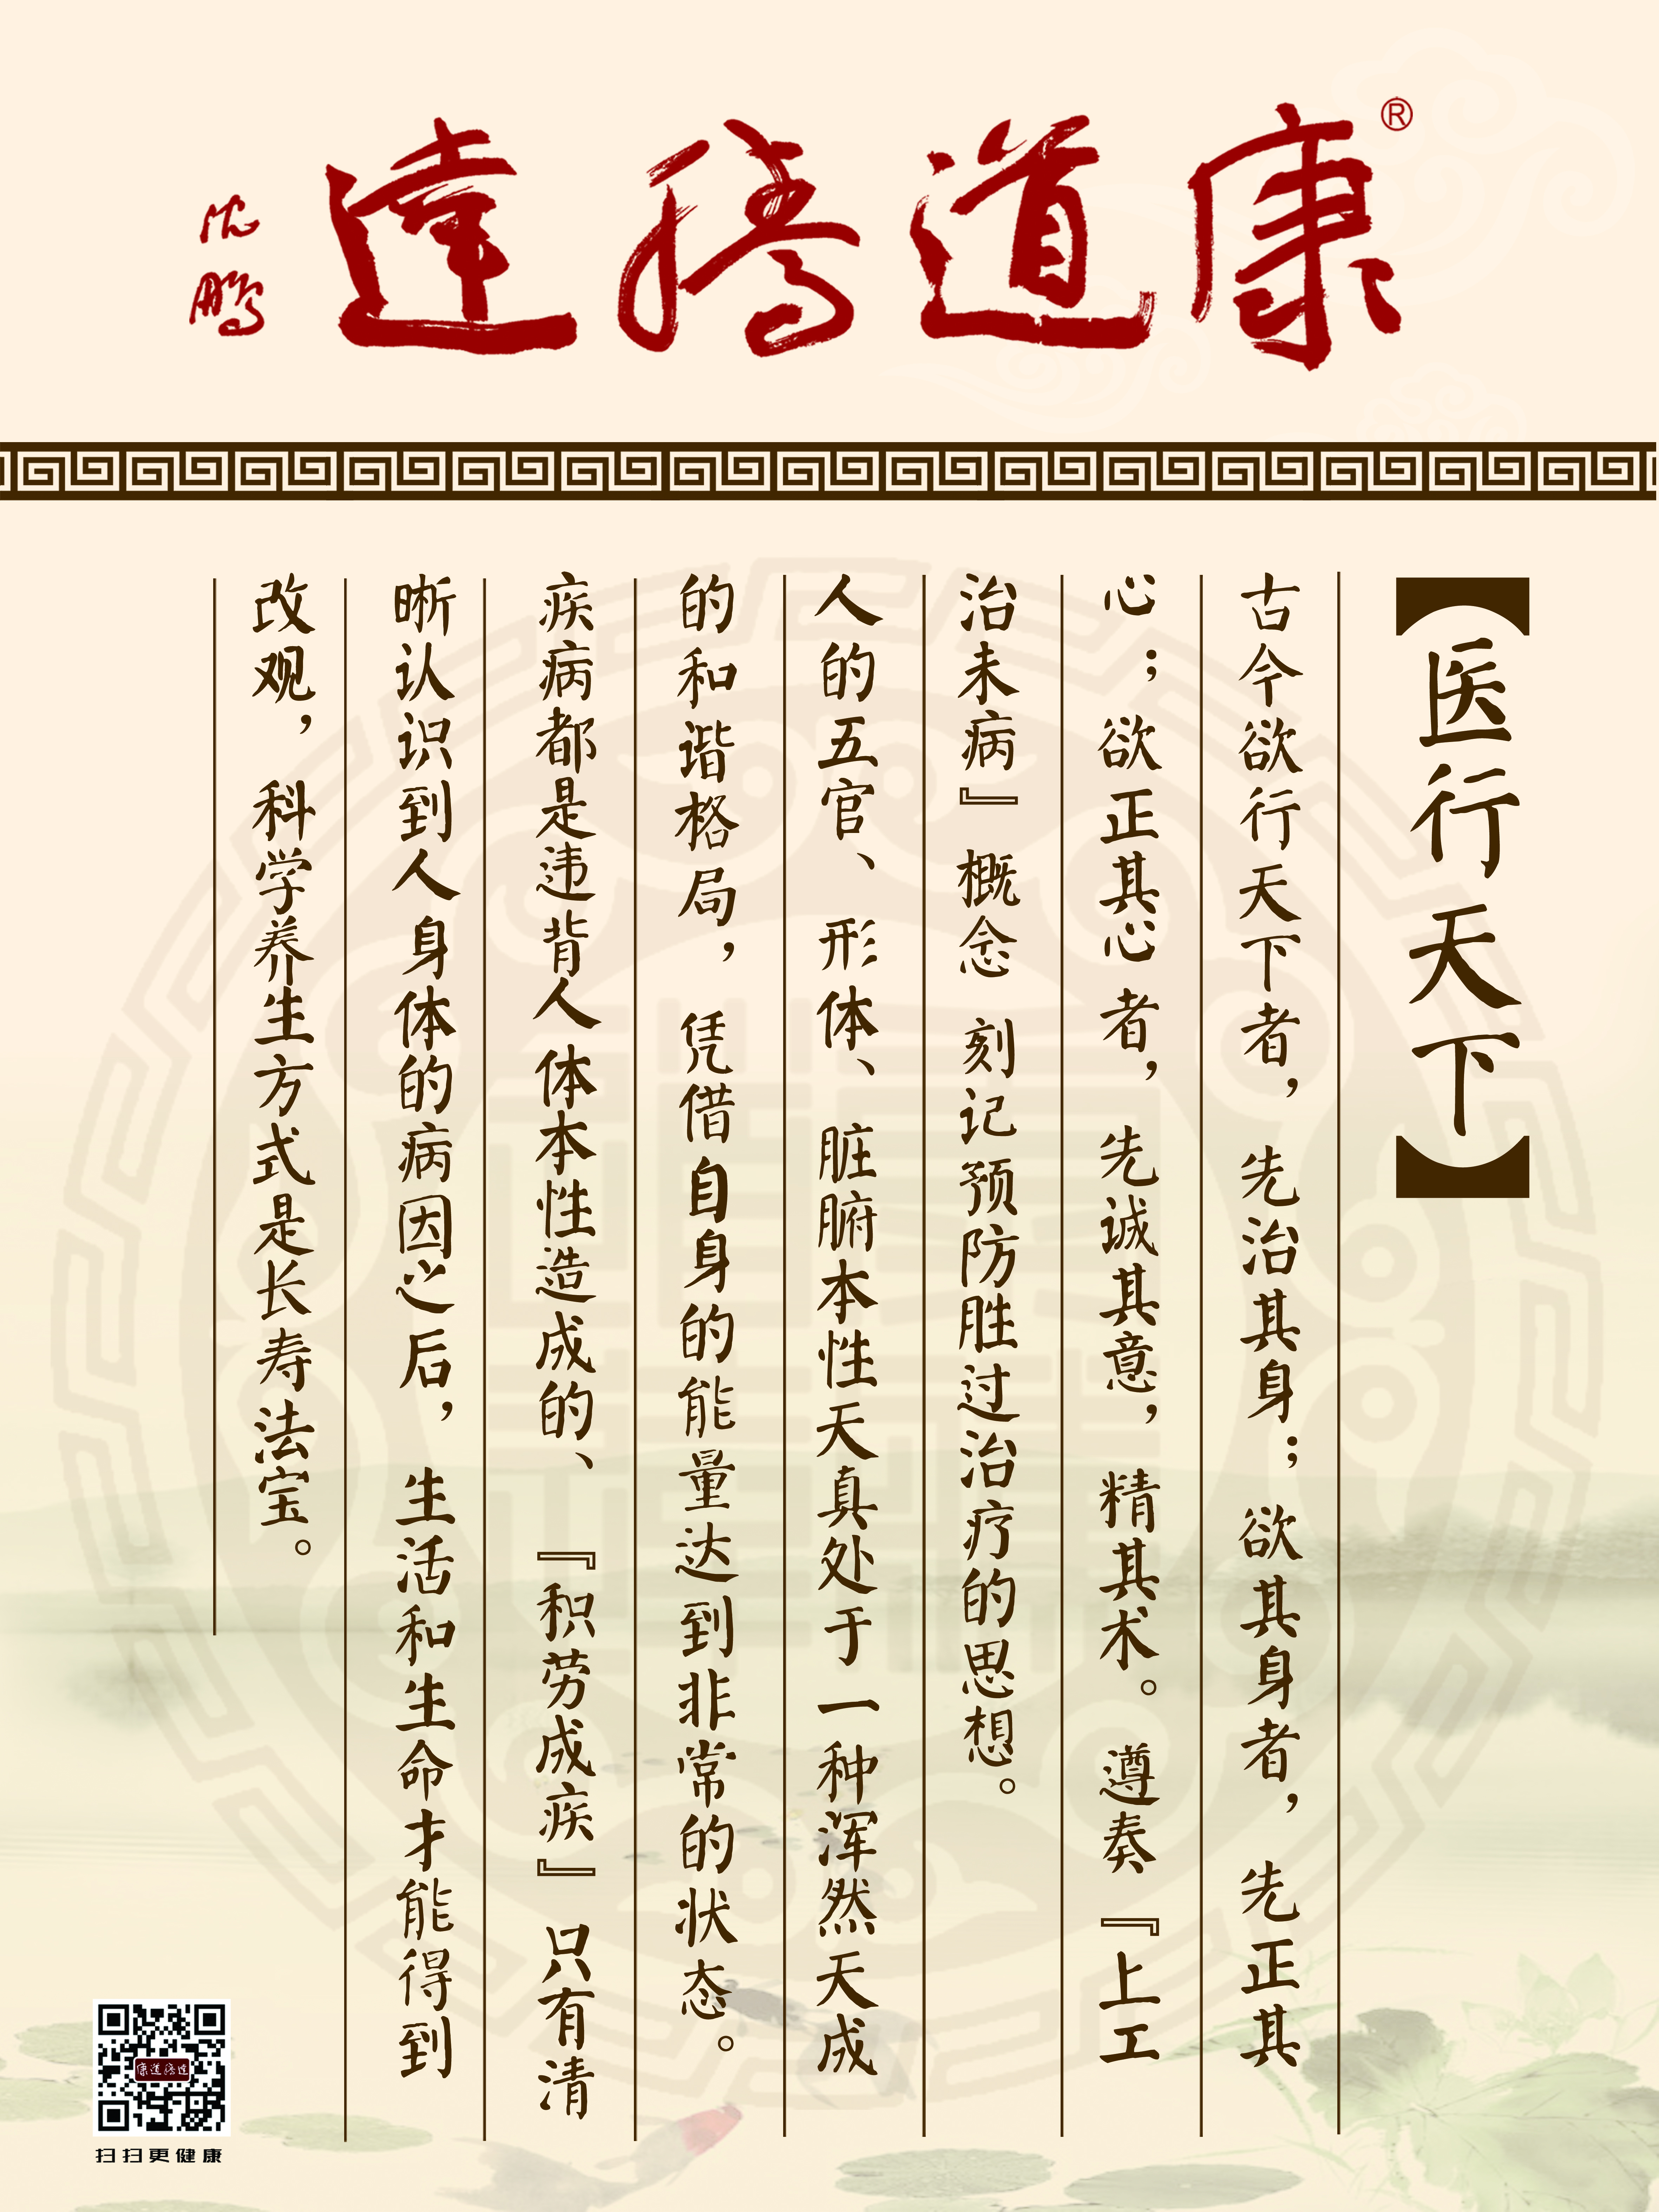 康道腾達®
沈鹏
【医行天下】
古今欲行天下者，先治其身；欲其身者，先正其
心；欲正其心者，先诚其意，精其术。遵奏『上工
治未病』概念 刻记预防胜过治疗的思想。
人的五官、形体、脏腑本性天真处于一种浑然天成
的和谐格局，凭借自身的能量达到非常的状态。
疾病都是违背人体本性造成的、『积劳成疾』只有清
晰认识到人身体的病因之后，生活和生命才能得到
改观，科学养生方式是长寿法宝。
康道腾達
扫扫更健康